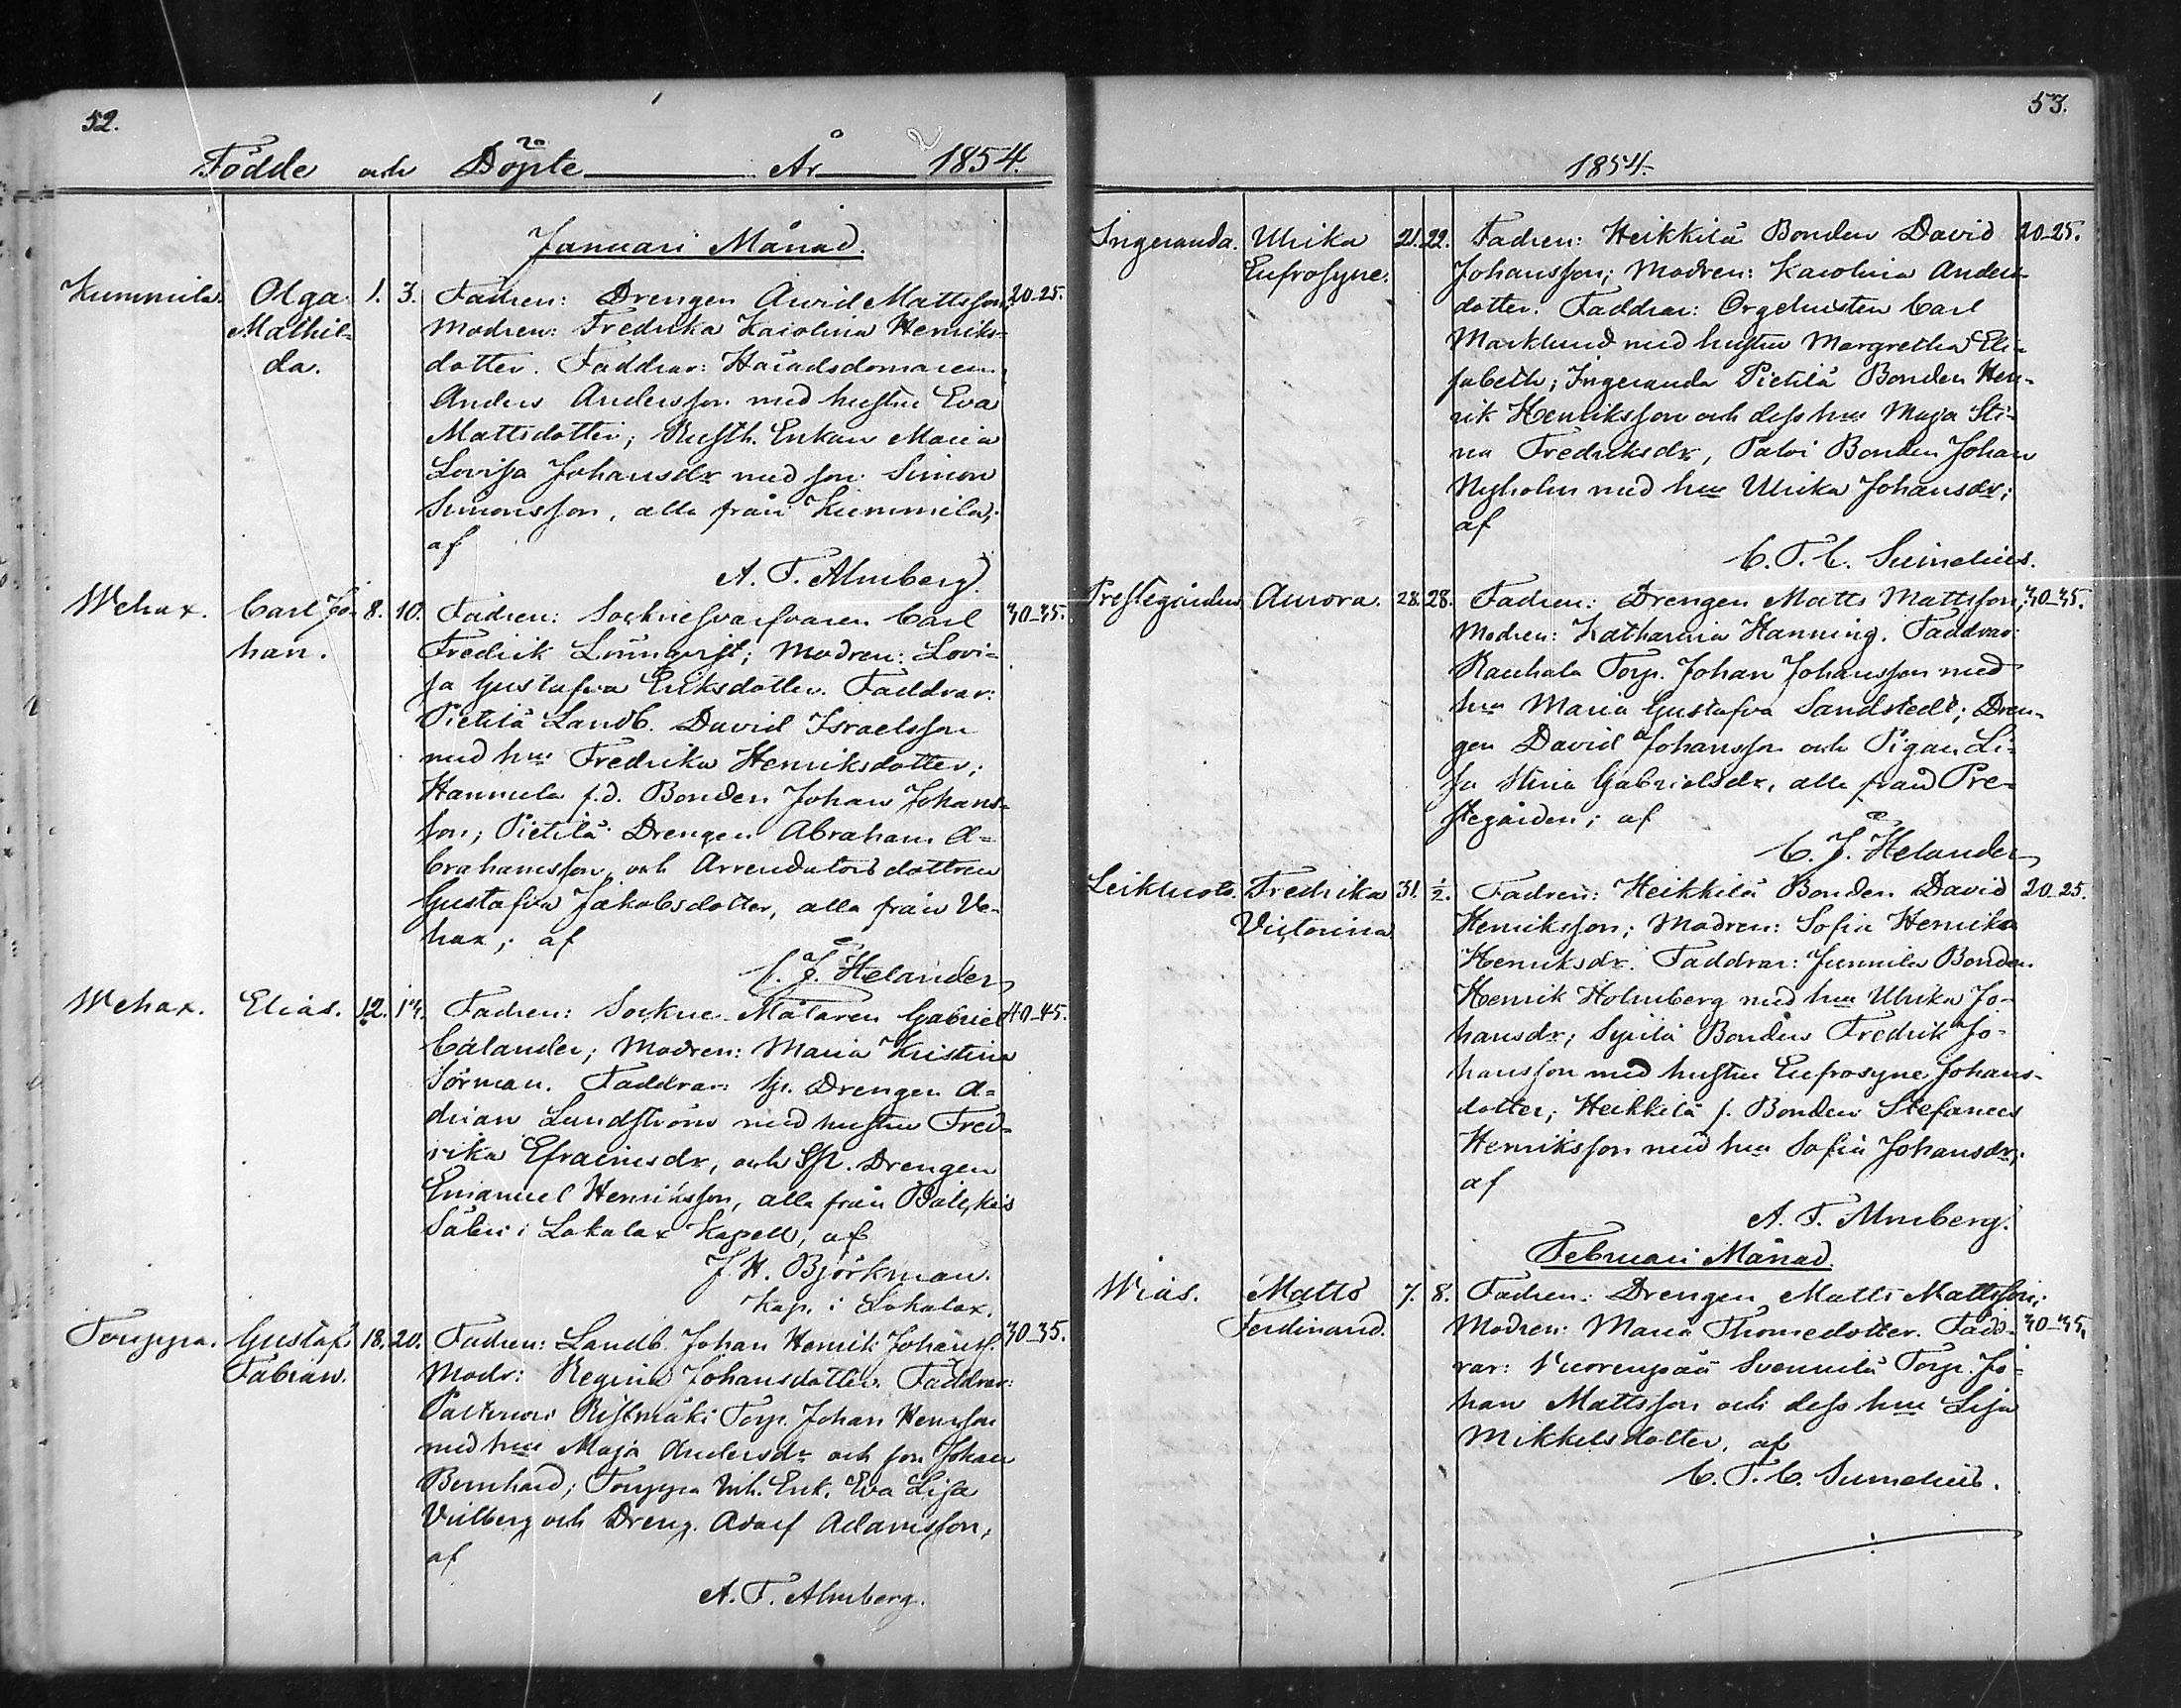 52.
Födde och Döpte År 1854.
Januari Månad.
Kummila. Olga Mathil- da. 1. 3. Fadren: Drengen Arvid Mattsson; 20-25.
Modren: Fredrika Karolina Henriks-
dotter. Faddrar: Häradsdomaren
Anders Andersson med hustru Eva
Mattsdotter; Rusth. Enkan Maria
Lovisa Johansdr med son Simon
Simonsson, alla från Kummila;
af
A. F. Almberg.
Wehax. Carl Jo- han. 8. 10. Fadren: Sockneskarfvaren Carl 30-35.
Fredrik Lönnqvist; Modren: Lovi-
sa Gustafva Eriksdotter. Faddrar:
Pietilä Landb. David Israelsson
med hru Fredrika Henriksdotter;
Hannula f.d. Bonden Johan Johans-
son; Pietilä Drengen Abraham A-
brahamsson och Arrendators dottren
Gustafva Jakobsdotter, alla från Ve-
hax; af
C. J. Helander
Wehax. Elias. 12. 14. Fadren: Sockne Målaren Gabriel 40-45.
Calander; Modren: Maria Kristina
Sörman. Faddrar: Sp. Drengen A-
drian Lundström med hustru Fred-
rika Efraimsdr, och Sp. Drengen
Emanuel Henriksson, alla från
Säteri i Lokalax Kapell, af
J. H. Björkman.
Kap. i Lokalax.
Touppa. Gustaf Fabian. 18. 20. Fadren: Landb. Johan Henrik Johanss. 30-35.
Modr: Regina Johansdotter. Faddrar:
Ristmäki Torp. Johan Henrsson
med hru Maja Andersdr och son Johan
Bernhard; Touppa Inh. Enk. Eva Lisa
Vilberg och Dreng. Adolf Adamsson,
af
A. F. Almberg.
53.
1854.
Ingeranda. Ulrika Eufrosyne. 21. 22. Fadren: Heikkilä Bonden David 20-25.
Johansson; Modren: Karolina Anders-
dotter. Faddrar: Orgelnisten Carl
Marklund med hustru Margretha Eli-
sabeth; Ingeranda Pietilä Bonden Hen-
rik Henriksson och dess hru Maja Sti-
na Fredriksdr, Palvi Bonden Johan
Nyholm med hru Ulrika Johansdr;
af
C. F. C. Sumelius.
Prestegården Aurora. 28. 28. Fadren: Drengen Matts Mattsson; 30-35.
Modren: Katharina Hanning. Faddrar:
Rauhala Torp. Johan Johansson med
hru Maria Gustafva Sandstedt; Dren-
gen David Johansson och Pigan Li-
sa Stina Gabrielsdr, alla från Pre-
stegården; af
C. J. Helander
Leikluoto. Fredrika Victorina. 31. ½. Fadren: Heikkilä Bonden David 20-25.
Henriksson; Modren: Sofia Henrika
Henriksdr. Faddrar: Junnila Bonden
Henrik Holmberg med hru Ulrika Jo-
hansdr; Bonden Fredrik Jo-
hansson med hustru Eufrosyne Johans-
dotter; Heikkilä f. Bonden Stefanus
Henriksson med hru Sofia Johansdr;
af
A. F. Almberg.
Februari Månad.
Wiås. Matts Ferdinand. 7. 8. Fadren: Drengen Matts Mattsson;
Modren: Maria Thomedotter. Fadd- 30-35.
rar: Vuorenpää Svennilä Torp. Jo-
han Mattsson och dess hru Lisa
Mikkelsdotter, af
C. F. C. Sumelius.